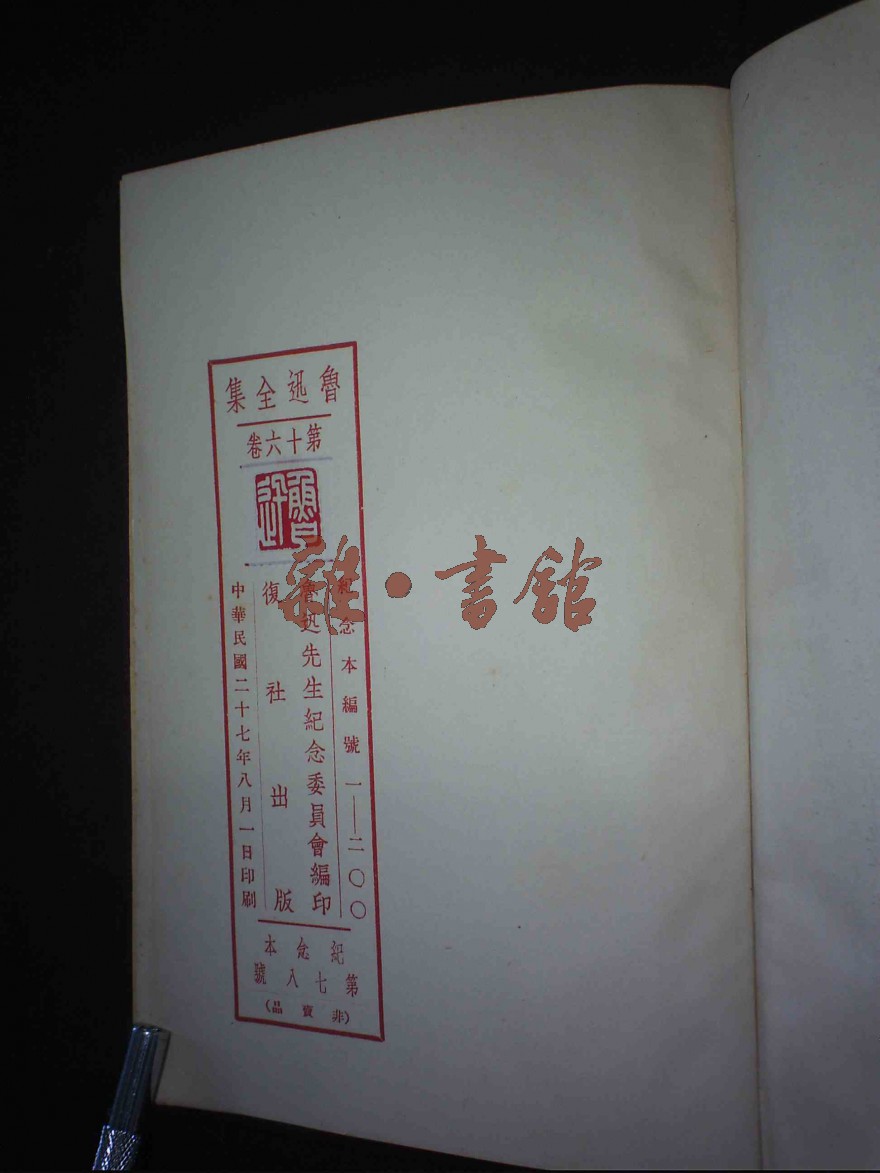 魯迅全集
第十六卷
魯迅
紀念本編號 一——二〇〇
魯迅先生紀念委員會編印
復社出版
中華民國二十七年八月一日印刷
紀念本
第七八號
(非賣品)
雜·書館